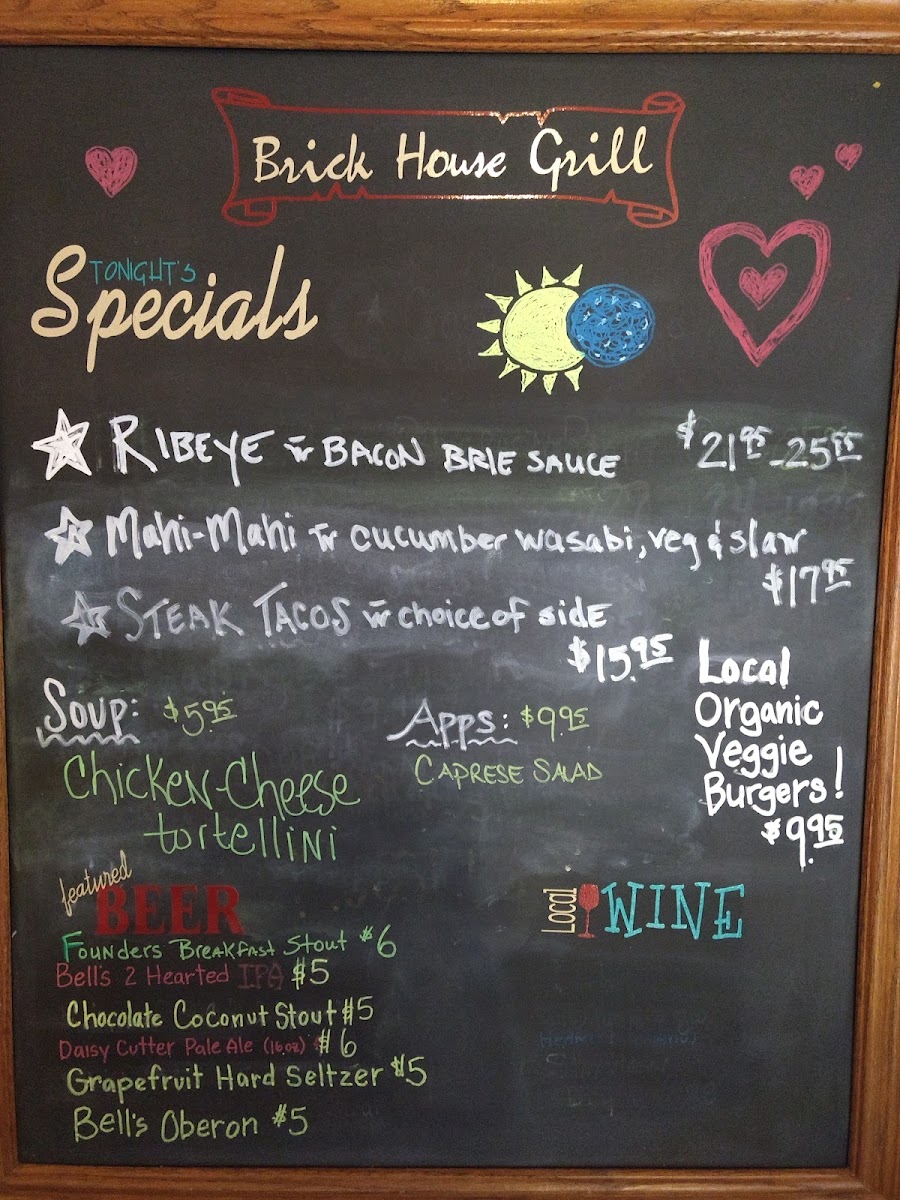 Brick House Grill
TONIGHT'S
Specials
RIBEYE w BACON BRIE SAUCE $21.95-25.95
Mahi-Mahi w cucumber wasabi, veg & slaw
$17.95
STEAK TACOS w choice of side
$15.95
Soup: $5.95
Chicken-Cheese
tortellini
Apps: $9.95
CAPRESE SALAD
Local
Organic
Veggie
Burgers!
$9.95
featured
BEER
Founders Breakfast Stout $6
Bell's 2 Hearted IPA $5
Chocolate Coconut Stout $5
Daisy Cutter Pale Ale (16oz) $6
Grapefruit Hard Seltzer $5
Bell's Oberon $5
Local WINE